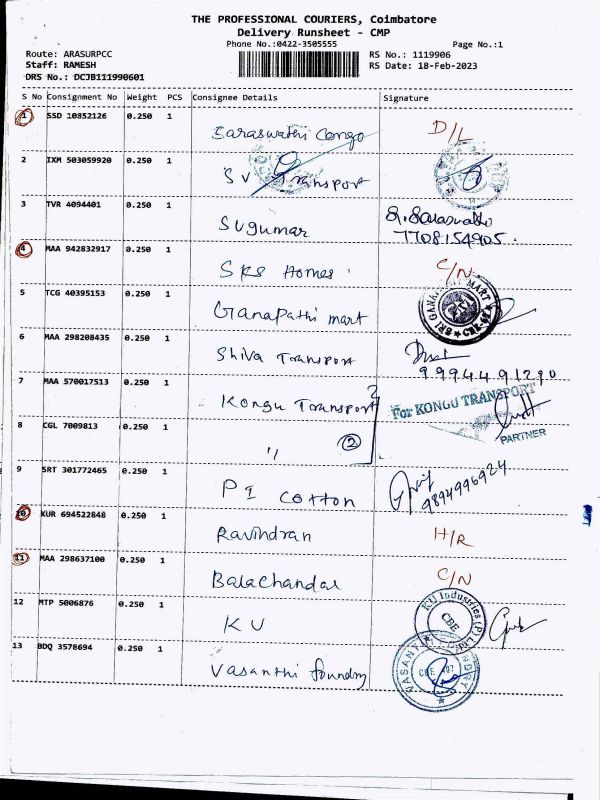 THE PROFESSIONAL COURIERS, Coimbatore
Delivery Runsheet - CMP
Phone No.:0422-3505555 Page No.:1
Route: ARASURPCC RS No.: 1119906
Staff: RAMESH RS Date: 18-Feb-2023
DRS No.: DCJB111990601
S No Consignment No Weight PCS Consignee Details Signature
1 SSD 10852126 0.250 1 Saraswathi Congo D/L
2 IXM 503059920 0.250 1 SV Transport
3 TVR 4094401 0.250 1 Sugumar
7708154905.
4 MAA 942832917 0.250 1 SKS Homes C/N
5 TCG 40395153 0.250 1 Ganapathi mart SRI GANAPATHI MART CBE
6 MAA 298208435 0.250 1 Shiva Transport
9994491290
7 MAA 570017513 0.250 1 Kongu Transport For KONGU TRANSPORT
PARTNER
8 CGL 7009813 0.250 1 " 2
9 SRT 301772465 0.250 1 PI Cotton 9894996924
10 KUR 694522848 0.250 1 Ravindran H/R
11 MAA 298637100 0.250 1 Balachandar C/N
12 MTP 5006876 0.250 1 KU KU Industries (P) Ltd. CBE
13 BDQ 3578694 0.250 1 Vasanthi foundry